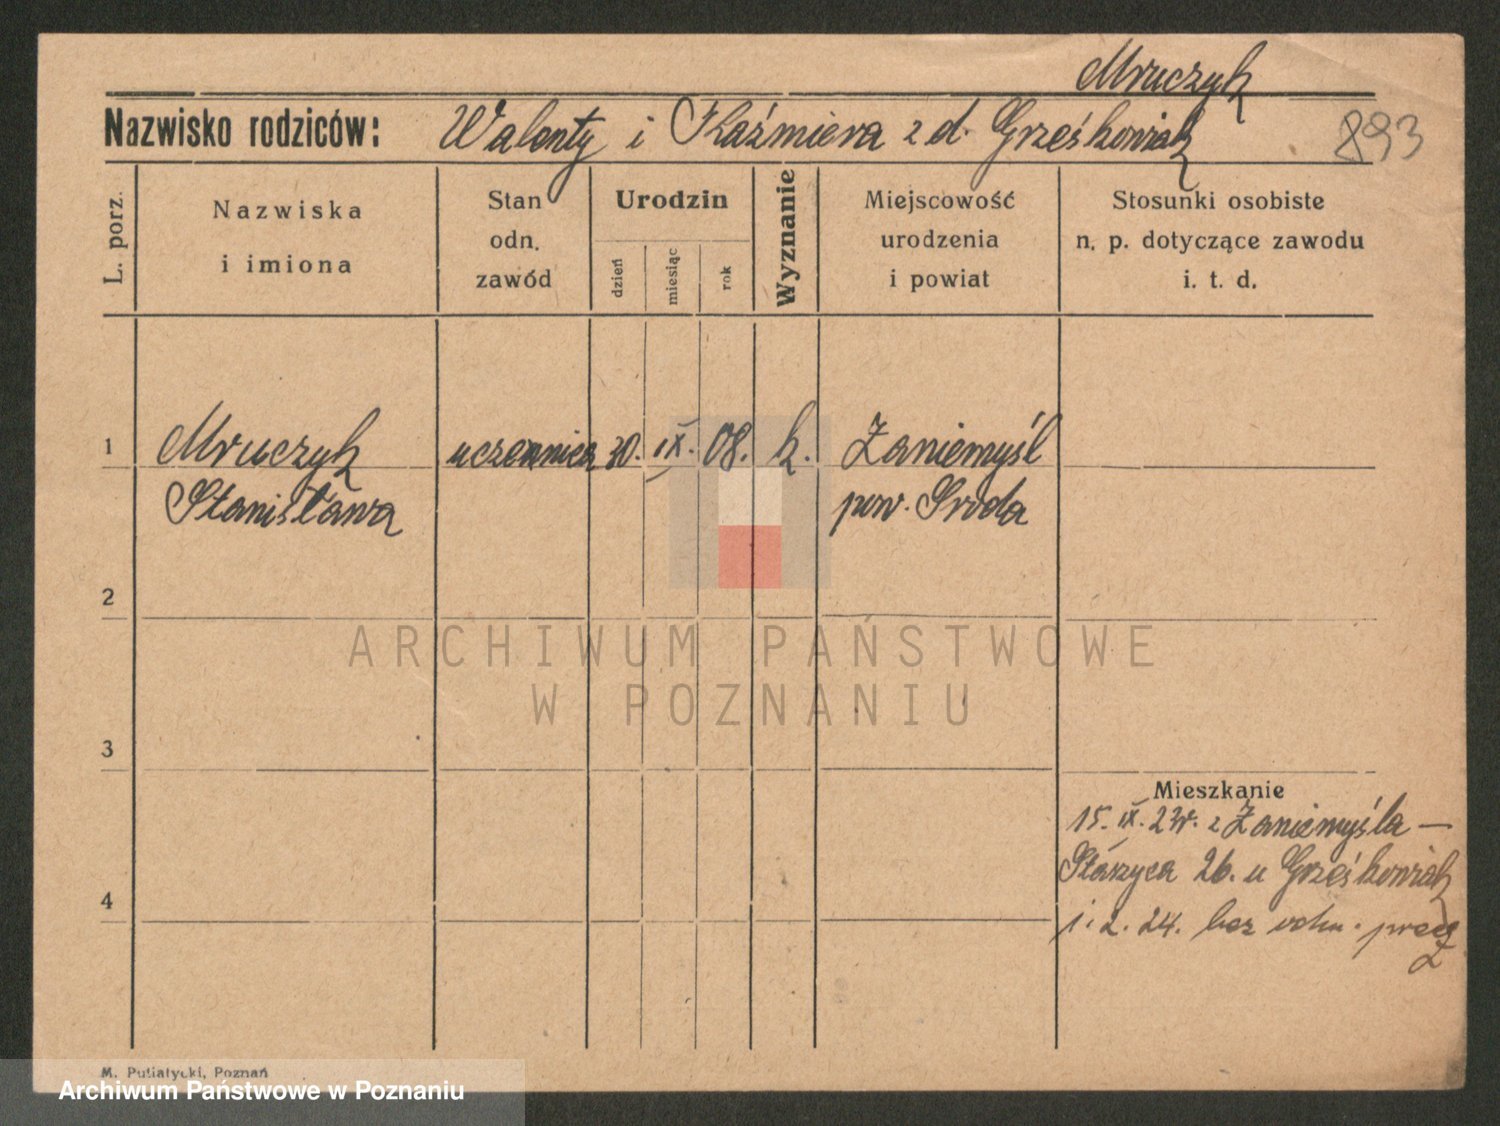 Mruczyk
Nazwisko rodziców: Walenty i Kaźmiera z d. Grześkowiak 893
L. porz.
Nazwiska i imiona
Stan odn. zawód
Urodzin
dzień
miesiąc
rok
Wyznanie
Miejscowość urodzenia i powiat
Stosunki osobiste n. p. dotyczące zawodu i. t. d.
1 Mruczyk uczennica 30. IX. 08. k. Zaniemyśl
Stanisława pow. Sroda
2
ARCHIWUM PAŃSTWOWE
W POZNANIU
3
Mieszkanie
15. IX. 23r. z Zaniemyśla —
Staszyca 26. u Grześkowiak
4
1. 2. 24. bez
M. Putiatycki, Poznań
Archiwum Państwowe w Poznaniu